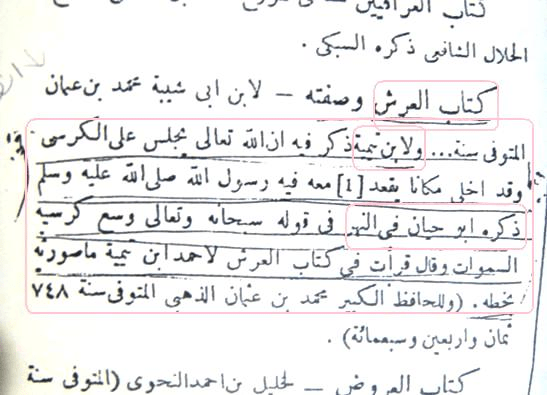 كتاب العراقيين
الجلال الشافعى ذكره السبكى .
كتاب العرش وصفته – لابن ابى شيبة محمد بن عثمان
المتوفى سنة... ولابن تيمية ذكر فيه ان الله تعالى يجلس على الكرسى
وقد اخلى مكانا يقعد [1] معه فيه رسول الله صلى الله عليه وسلم
ذكره ابو حيان فى النهر فى قوله سبحانه وتعالى وسع كرسيه
السموات وقال قرأت فى كتاب العرش لاحمد ابن تيمية ماصورته
بخطه . (وللحافظ الكبير محمد بن عثمان الذهبى المتوفى سنة ٧٤٨
ثمان واربعين وسبعمائة) .
كتاب العروض – لخليل بن احمد النحوى (المتوفى سنة